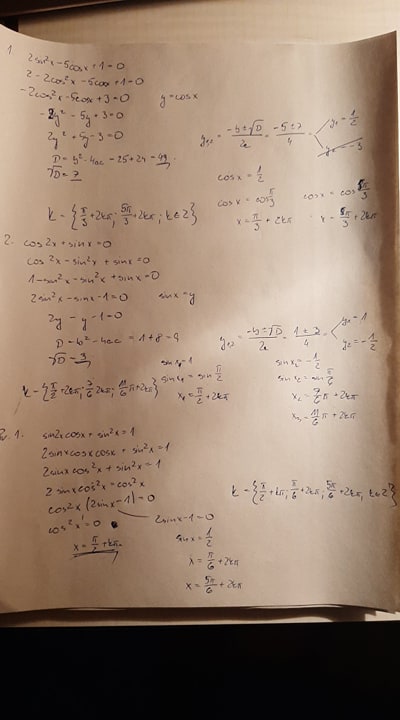 1.
2sin²x-5cosx+1=0
2-2cos²x-5cosx+1=0
-2cos²x-5cosx+3=0 y=cosx
-2y²-5y+3=0
2y²+5y-3=0
D=b²-4ac=25+24=49
√D=7
y₁,₂=(-b±√D)/2a=(-5±7)/4
y₁=1/2
y₂=-3
cosx=1/2
cosx=cos π/3 cosx=cos 5π/3
x=π/3+2kπ x=5π/3+2kπ
K={π/3+2kπ; 5π/3+2kπ; k∈Z}
2. cos2x+sinx=0
cos²x-sin²x+sinx=0
1-sin²x-sin²x+sinx=0
2sin²x-sinx-1=0 sinx=y
2y-y-1=0
D=b²-4ac=1+8=9
√D=3
y₁,₂=(-b±√D)/2a=(1±3)/4
y₁=1
y₂=-1/2
sinx₁=1
sinx₁=sin π/2
x₁=π/2+2kπ
sinx₂=-1/2
sinx₂=sin π/6
x₂=7/6π+2kπ
x₃=11/6π+2kπ
K={π/2+2kπ; 7/6π+2kπ; 11/6π+2kπ}
1. sin2xcosx+sin²x=1
2sinxcosxcosx+sin²x=1
2sinxcos²x+sin²x=1
2sinxcos²x=cos²x
cos²x(2sinx-1)=0
cos²x=0
x=π/2+kπ
2sinx-1=0
sinx=1/2
x=π/6+2kπ
x=5π/6+2kπ
K={π/2+kπ; π/6+2kπ; 5π/6+2kπ, k∈Z}